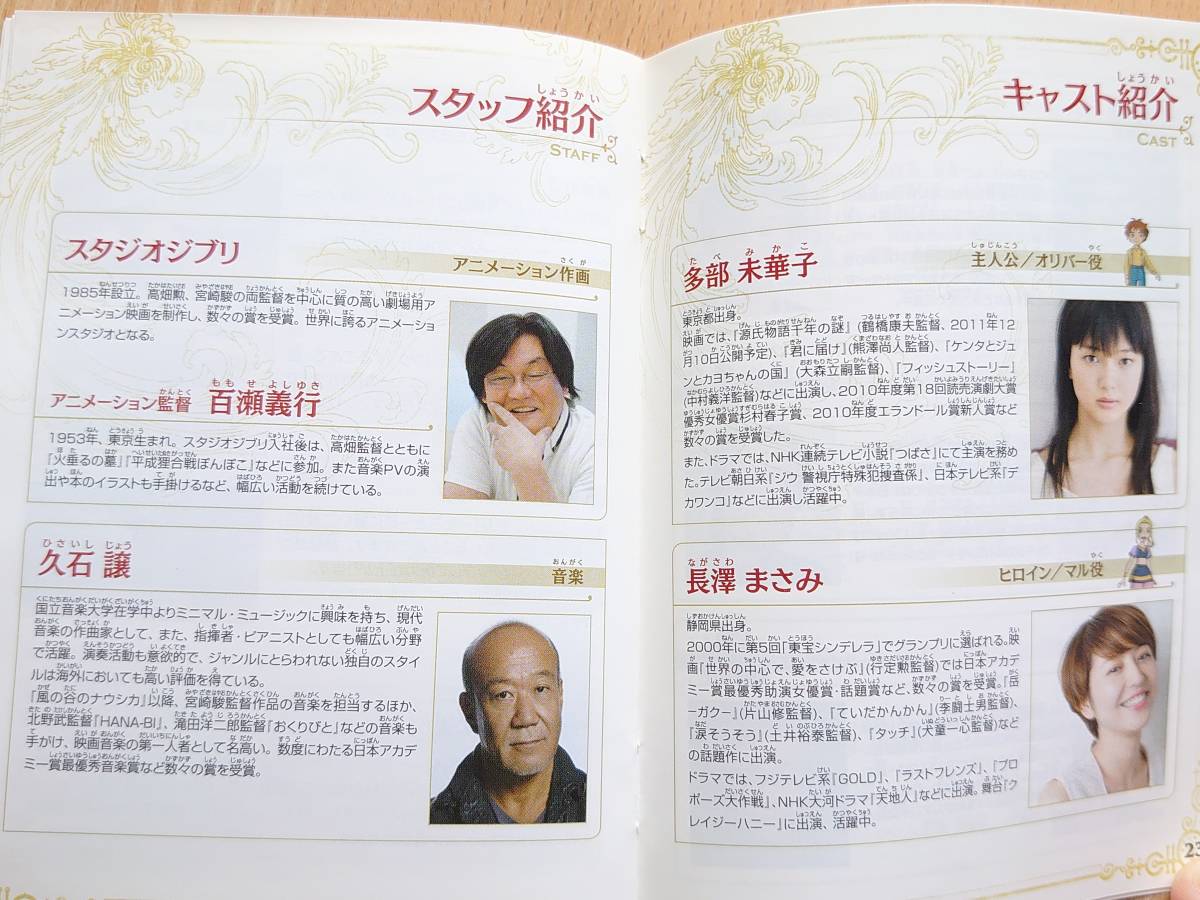 スタッフ紹介
STAFF
スタジオジブリ
アニメーション作画
1985年設立。高畑勲、宮崎駿の両監督を中心に質の高い劇場用ア
ニメーション映画を制作し、数々の賞を受賞。世界に誇るアニメーショ
ンスタジオとなる。
アニメーション監督 百瀬義行
1953年、東京生まれ。スタジオジブリ入社後は、高畑監督とともに
『火垂るの墓』『平成狸合戦ぽんぽこ』などに参加。また音楽PVの演
出や本のイラストも手掛けるなど、幅広い活動を続けている。
久石 譲
音楽
国立音楽大学在学中よりミニマル・ミュージックに興味を持ち、現代
音楽の作曲家として、また、指揮者・ピアニストとしても幅広い分野
で活躍。演奏活動も意欲的で、ジャンルにとらわれない独自のスタイ
ルは海外においても高い評価を得ている。
『風の谷のナウシカ』以降、宮崎駿監督作品の音楽を担当するほか、
北野武監督『HANA-BI』、滝田洋二郎監督『おくりびと』などの音楽も
手がけ、映画音楽の第一人者として名高い。数度にわたる日本アカデ
ミー賞最優秀音楽賞など数々の賞を受賞。
キャスト紹介
CAST
多部 未華子
主人公／オリバー役
東京都出身。
映画では、『源氏物語千年の謎』(鶴橋康夫監督、2011年12
月10日公開予定)、『君に届け』(熊澤尚人監督)、『ケンタとジュ
ンとカヨちゃんの国』(大森立嗣監督)、『フィッシュストーリー』
(中村義洋監督)などに出演し、2010年度第18回読売演劇大賞
優秀女優賞杉村春子賞、2010年度エランドール賞新人賞など
数々の賞を受賞した。
また、ドラマでは、NHK連続テレビ小説『つばさ』にて主演を務め
た。テレビ朝日系『ジウ 警視庁特殊犯捜査係』、日本テレビ系『デ
カワンコ』などに出演し活躍中。
長澤 まさみ
ヒロイン／マル役
静岡県出身。
2000年に第5回「東宝シンデレラ」でグランプリに選ばれる。映
画『世界の中心で、愛をさけぶ』(行定勲監督)では日本アカデ
ミー賞最優秀助演女優賞・話題賞など、数々の賞を受賞。『岳
-ガク-』(片山修監督)、『ていだかんかん』(李闘士男監督)、
『涙そうそう』(土井裕泰監督)、『タッチ』(犬童一心監督)など
の話題作に出演。
ドラマでは、フジテレビ系『GOLD』、『ラストフレンズ』、『プロ
ポーズ大作戦』、NHK大河ドラマ『天地人』などに出演。舞台『ク
レイジーハニー』に出演、活躍中。
23